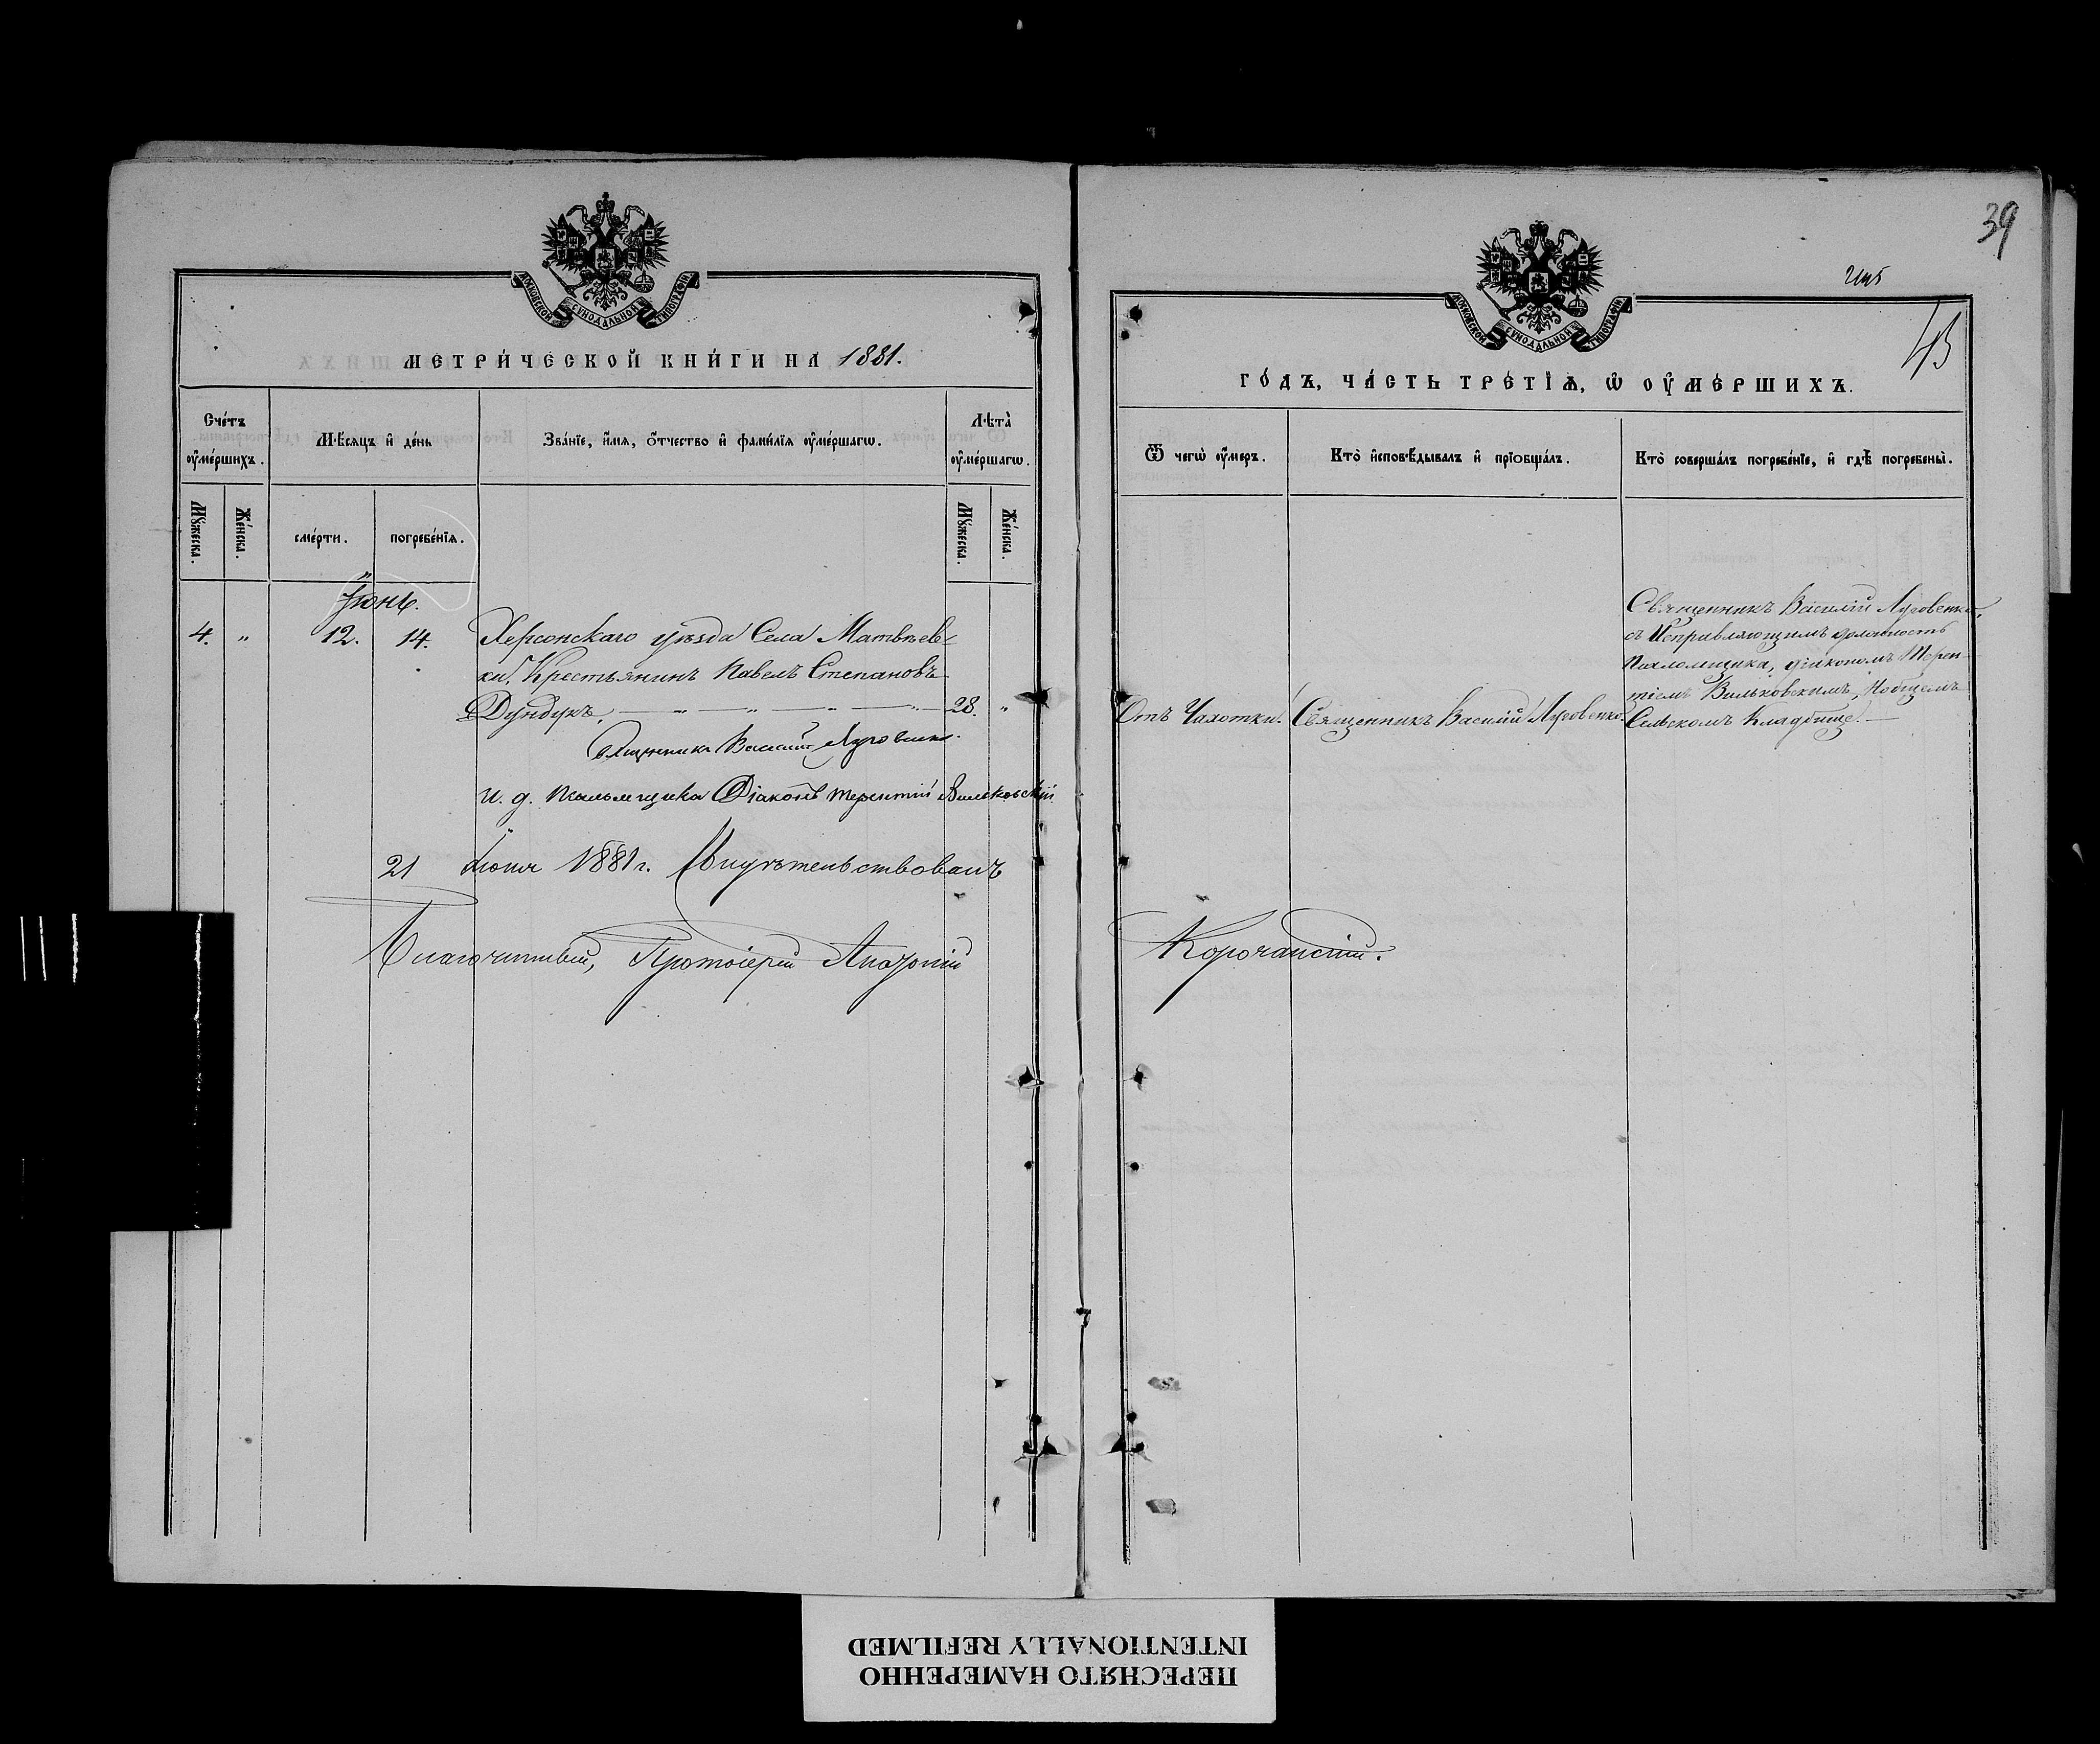 МОСКОВСКОЙ СУНОДАЛЬНОЙ ТИПОГРАФІИ
МЕТРИ́ЧЕСКОЙ КНИ́ГИ НА 1881.
Сче́тъ оу҆ме́ршихъ.
Мѣ́сяцъ и҆ де́нь
Зва́нїе, и҆́мѧ, ѻ҆́тчество и҆ фами́лїѧ оу҆ме́ршагѡ.
Лѣта̀ оу҆ме́ршагѡ.
Мꙋ́жеска.
Же́нска.
сме́рти.
погребе́нїѧ.
Мꙋ́жеска.
Же́нска.
Іюнь.
4. „ 12. 14. Херсонскаго уѣзда Села Матвѣев-
ки, Крестьянинъ Павелъ Степановъ
Дундукъ, — „ — „ — „ — „ — 28. „
Священникъ Василій Луговенко.
и. д. Псаломщика Діаконъ Терентій Вильковскій
21 Іюня 1881 г. Свидѣтельствовалъ
Благочинный, Протоіерей
39
45
МОСКОВСКОЙ СУНОДАЛЬНОЙ ТИПОГРАФІИ
ГО́ДЪ, ЧА́СТЬ ТРЕ́ТЇѦ, Ѡ҆ ОУ҆МЕ́РШИХЪ.
Ѿ чегѡ̀ оу҆́меръ.
Кто̀ и҆сповѣ́дывалъ и҆ прїобща́лъ.
Кто̀ соверша́лъ погребе́нїе, и҆ гдѣ̀ погребены̀.
Священникъ Василій Луговенко,
съ Исправляющимъ должность
Псаломщика, діакономъ Терен-
тіемъ Вильковскимъ, На общемъ
Отъ Чахотки. Священникъ Василій Луговенко. Сельскомъ Кладбищѣ. —
Корочанскій.
ПЕРЕСНЯТО НАМЕРЕННО
INTENTIONALLY REFILMED